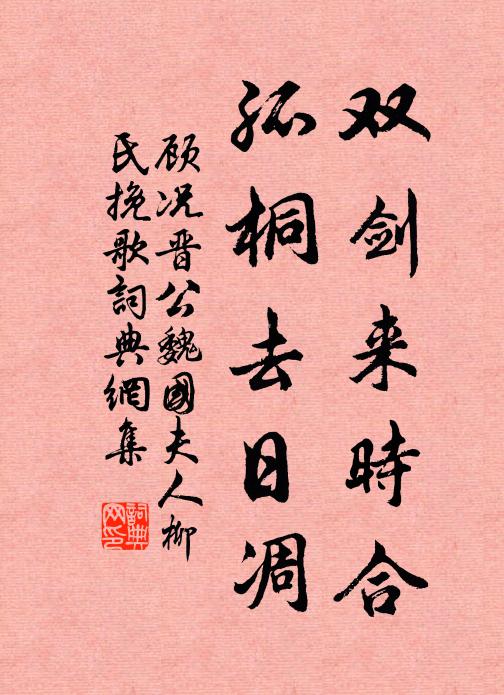 双剑来時合
孤桐去日凋
顾况晋公魏國夫人柳
氏挽歌詞典網集
詞典
网印